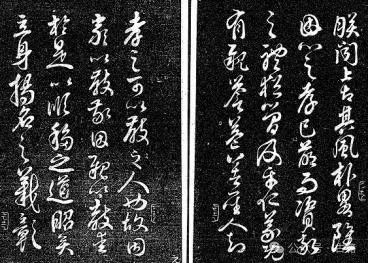 朕聞上古其風朴略雖
因心之孝已萌而資敬
之禮猶簡及乎仁義既
有親譽益著聖人知
孝之可以教人也故因
嚴以教敬因親以教愛
於是以順移忠之道昭矣
立身揚名之義彰